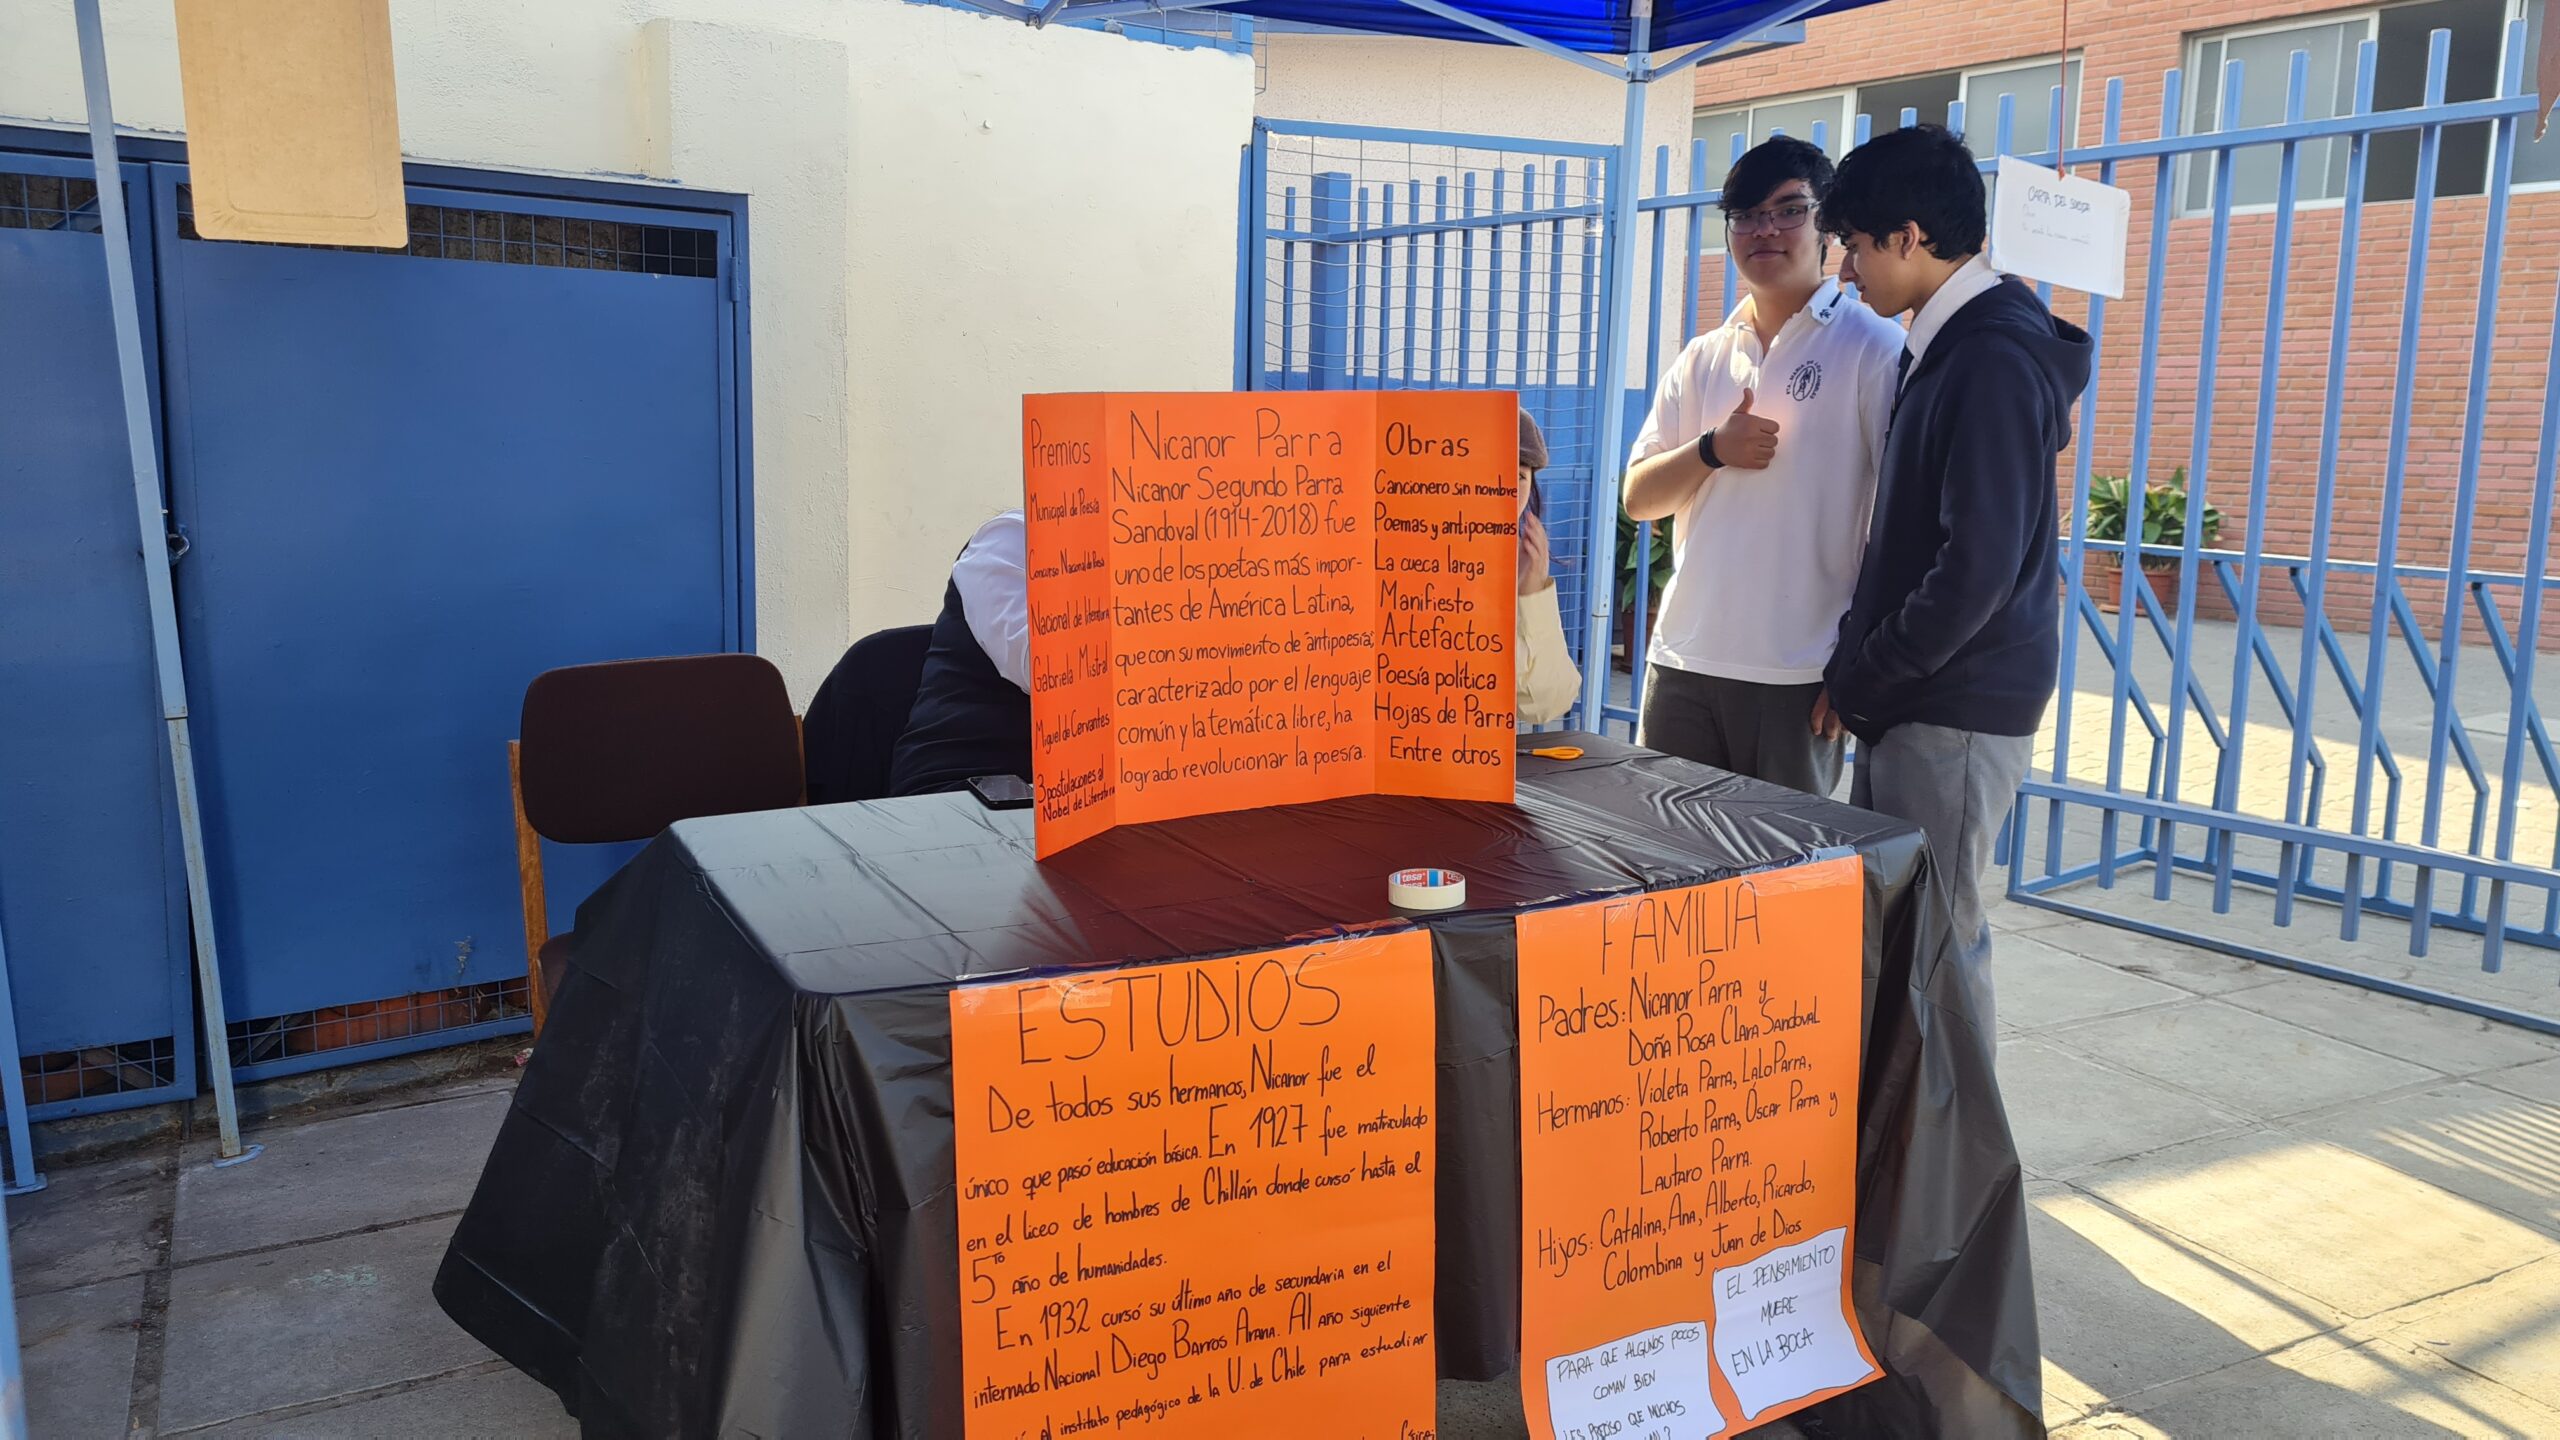 Premios
Municipal de Poesía
Concurso Nacional de Poesía
Nacional de literatura
Gabriela Mistral
Miguel de Cervantes
3 postulaciones al
Nobel de Literatura
Nicanor Parra
Nicanor Segundo Parra
Sandoval (1914-2018) fue
uno de los poetas más impor-
tantes de América Latina,
que con su movimiento de "antipoesía",
caracterizado por el lenguaje
común y la temática libre, ha
logrado revolucionar la poesía.
Obras
Cancionero sin nombre
Poemas y antipoemas
La cueca larga
Manifiesto
Artefactos
Poesía política
Hojas de Parra
Entre otros
CARTA DEL
tesa
ESTUDIOS
De todos sus hermanos, Nicanor fue el
único que pasó educación básica. En 1927 fue matriculado
en el liceo de hombres de Chillán donde cursó hasta el
5to año de humanidades.
En 1932 cursó su último año de secundaria en el
internado Nacional Diego Barros Arana. Al año siguiente
al instituto pedagógico de la U. de Chile para estudiar
FAMILIA
Padres: Nicanor Parra y
Doña Rosa Clara Sandoval
Hermanos: Violeta Parra, Lalo Parra,
Roberto Parra, Óscar Parra y
Lautaro Parra.
Hijos: Catalina, Ana, Alberto, Ricardo,
Colombina y Juan de Dios
EL PENSAMIENTO
MUERE
EN LA BOCA
PARA QUE ALGUNOS POCOS
COMAN BIEN
ES PRECISO QUE MUCHOS